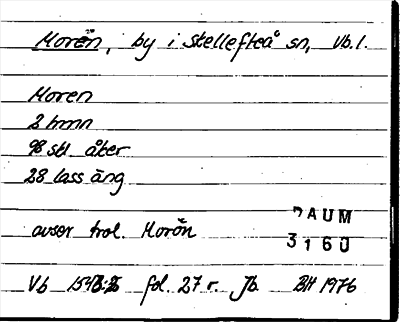 Morön, by i Skellefteå sn, Vb.l.
Moren
2 hmn
98 skl åker
28 lass äng
avser trol. Morön
DAUM
3160
Vb fol. 27 r. Jb. BH 1976